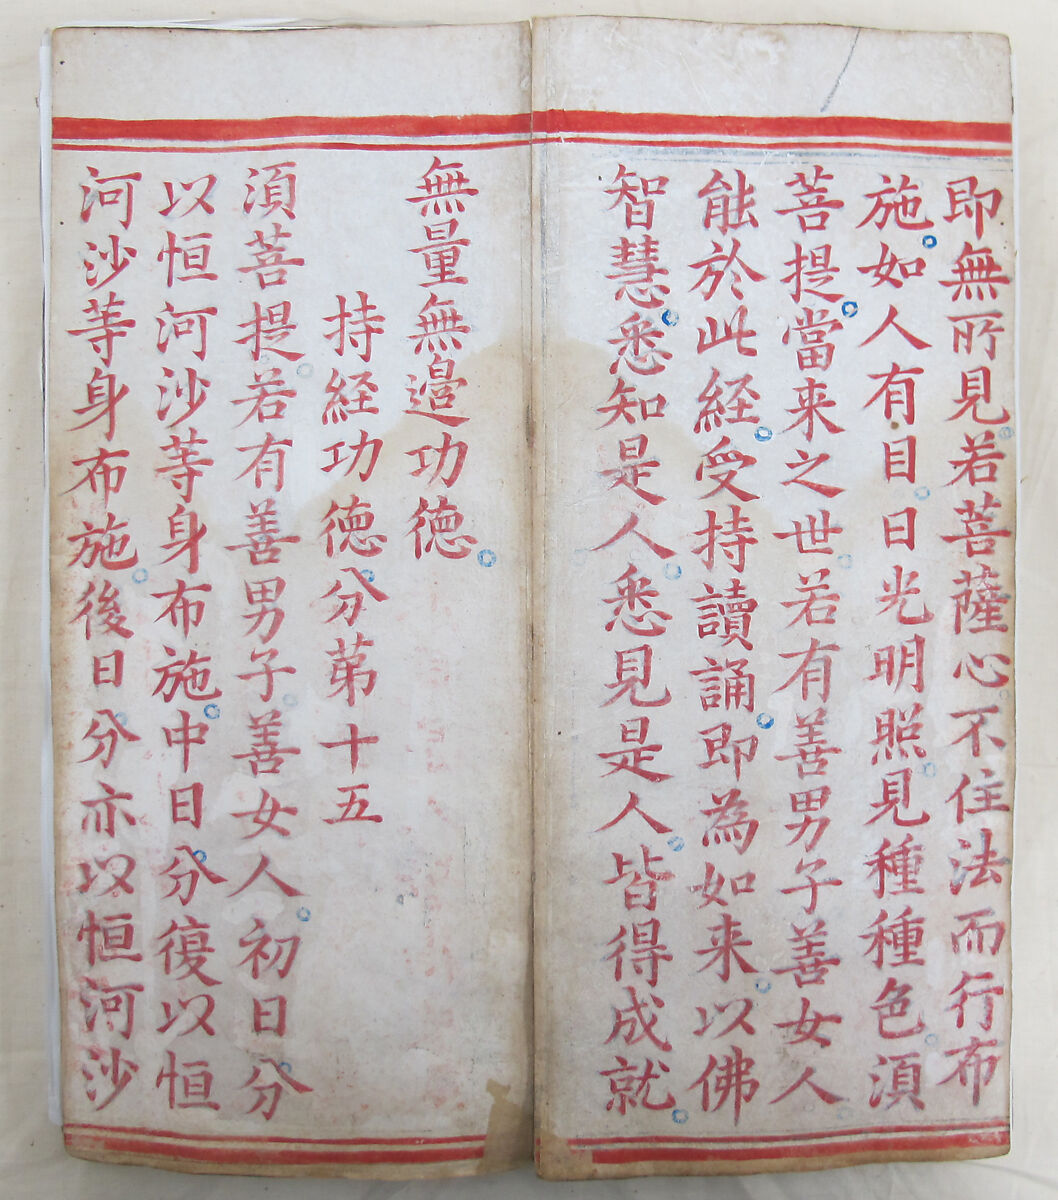 即無所見若菩薩心不住法而行布
施如人有目日光明照見種種色湏
菩提當来之世若有善男子善女人
能於此経受持讀誦即為如来以佛
智慧悉知是人悉見是人皆得成就
無量無邉功徳
持経功徳分苐十五
湏菩提若有善男子善女人初日分
以恒河沙等身布施中日分復以恒
河沙等身布施後日分亦以恒河沙